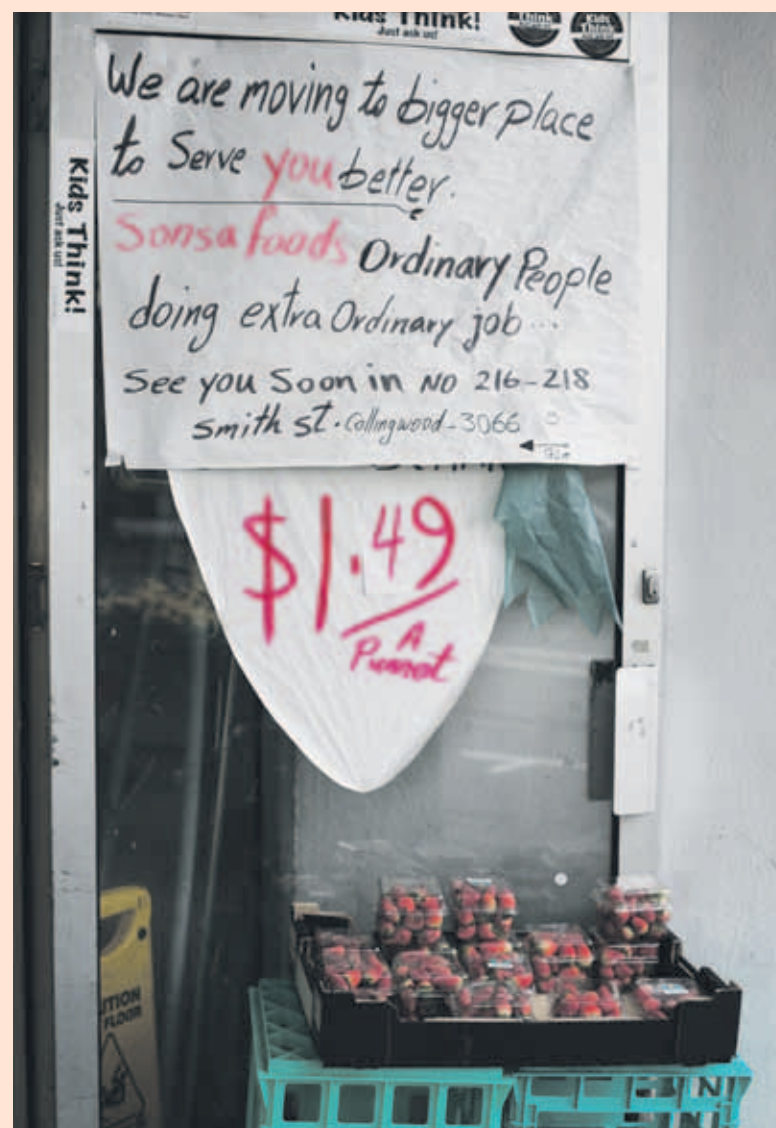 Kids Think!
Just ask us!
Think
Kids
Think
Kids Think!
Just ask us!
We are moving to bigger place
to Serve you better.
Sonsa foods Ordinary People
doing extra Ordinary job...
See you Soon in NO 216-218
Smith St. Collingwood-3066
$1.49
A
Punnet
UTION
FLOOR